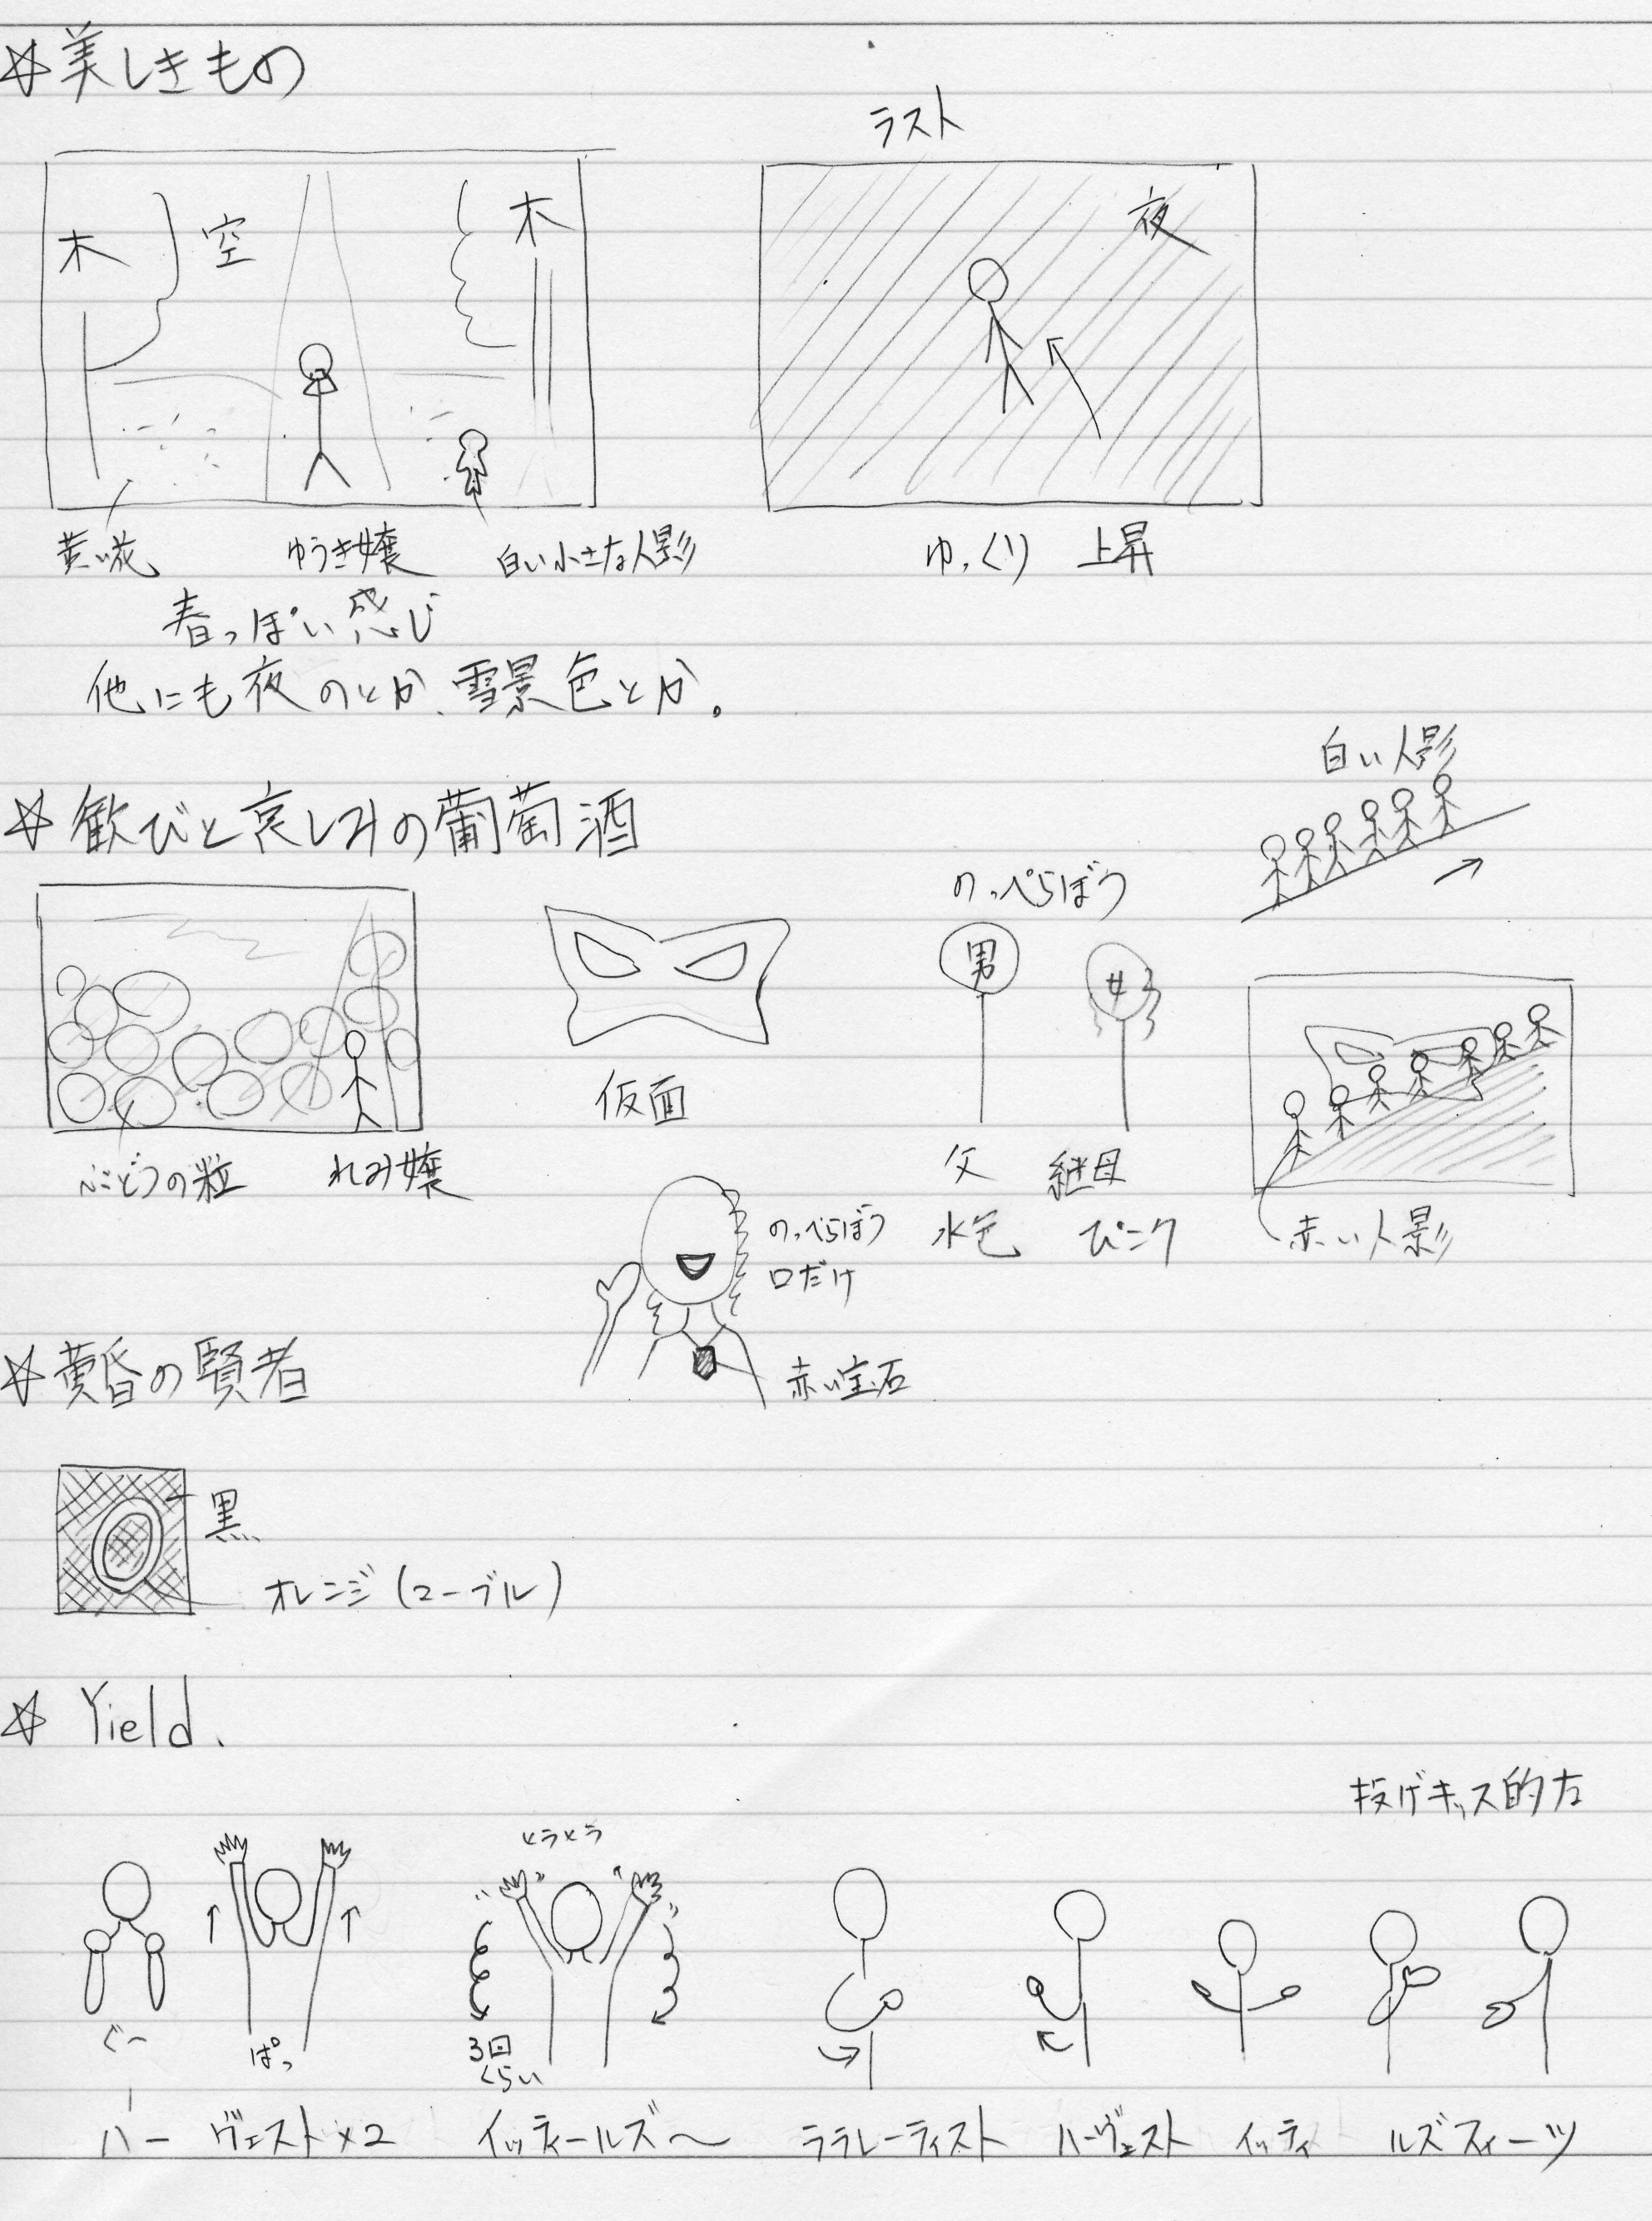 ☆美しきもの
ラスト
木 空 木
夜
黄い花 ゆうき嬢 白い小さな人影
ゆっくり 上昇
春っぽい感じ
他にも夜のとか、雪景色とか。
白い人影
☆歓びと哀しみの葡萄酒
のっぺらぼう
男 女
仮面
ぶどうの粒 れみ嬢
父 継母
水色 ぴンク
赤い人影
のっぺらぼう
口だけ
赤い宝石
☆黄昏の賢者
黒
オレンジ(マーブル)
☆Yield.
投げキッス的な
ヒラヒラ
ぐー
ぱっ
3回
くらい
ハー ヴェスト×2 イッティールズ〜 ララレーティスト ハーヴェスト イッティ ルズフィーツ